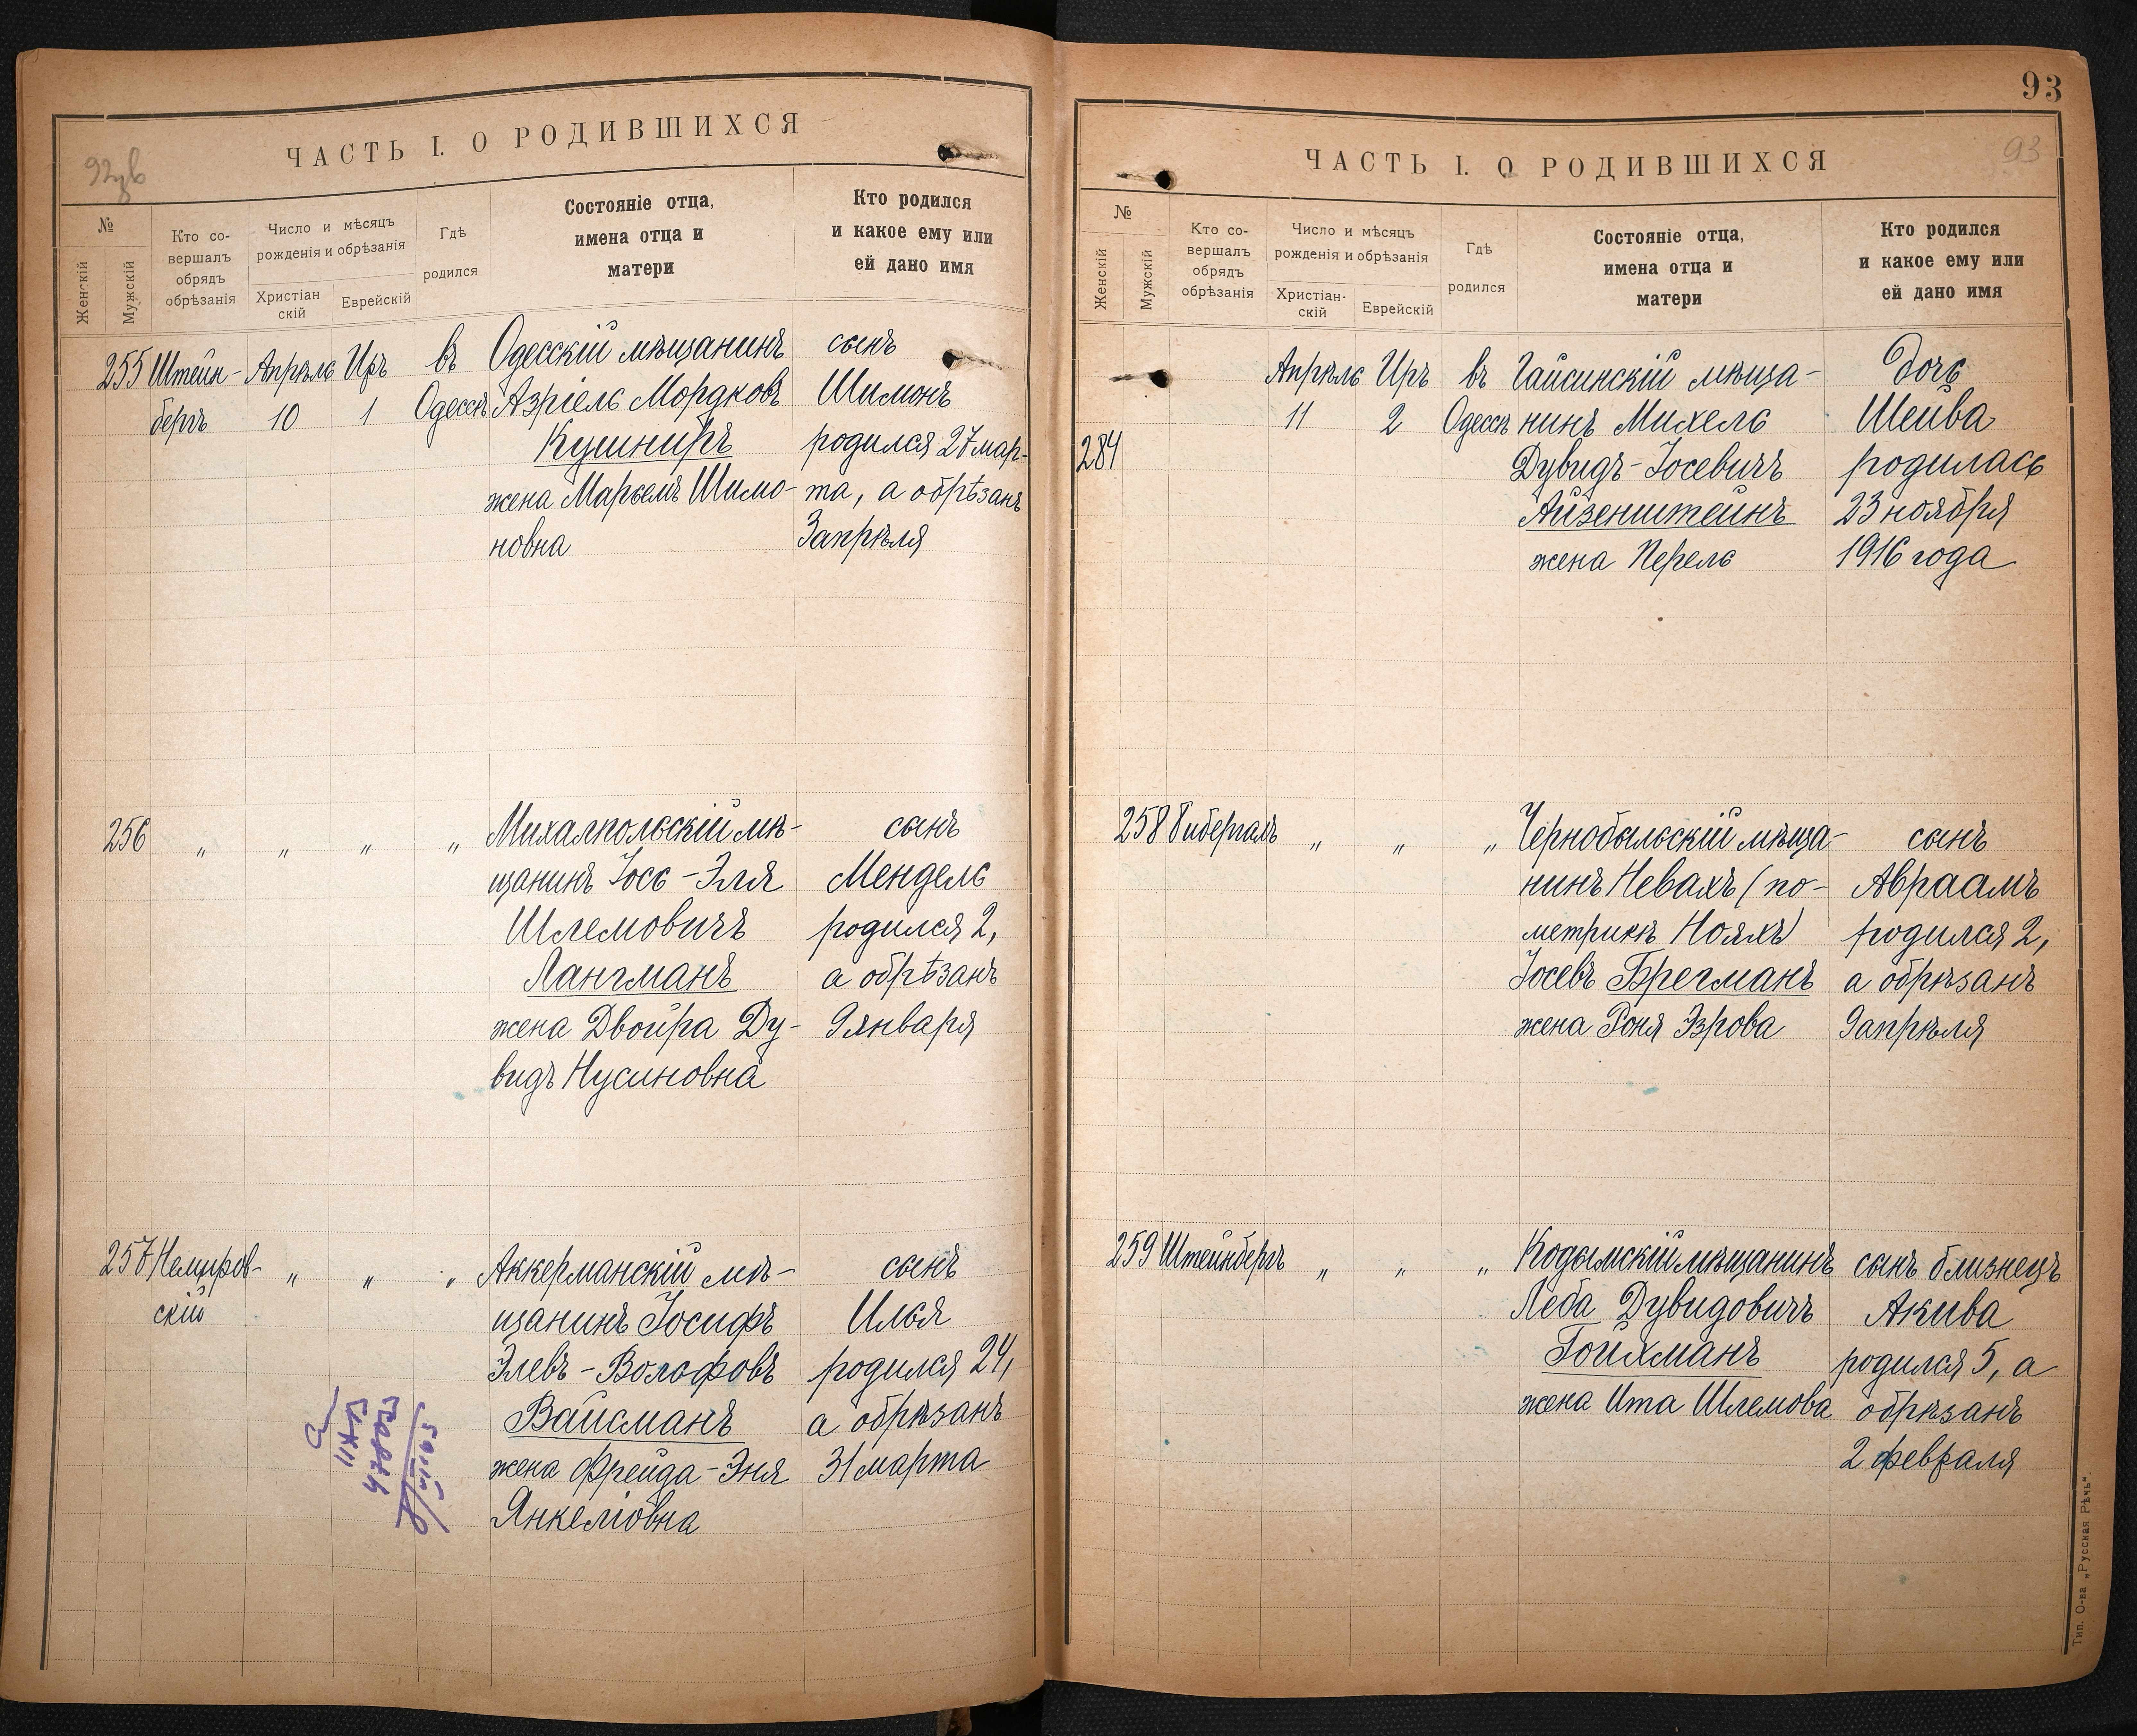 ЧАСТЬ I. О РОДИВШИХСЯ
№
Женскій
Мужскій
Кто со-
вершалъ
обрядъ
обрѣзанія
Число и мѣсяцъ
рожденія и обрѣзанія
Христіан
скій
Еврейскій
Гдѣ
родился
Состояніе отца,
имена отца и
матери
Кто родился
и какое ему или
ей дано имя
255
Штейн-
бергъ
Апрѣль
10
Иръ
1
въ
Одессѣ
Одесскій мѣщанинъ
Азріель Мордковъ
Кушниръ
жена Марьемъ Шимо-
новна
сынъ
Шимонъ
родился 27 мар-
та, а обрѣзанъ
3 апрѣля
256
„
„
„
„
Михалпольскій мѣ-
щанинъ Іось-Эля
Шлемовичъ
Лангманъ
жена Двойра Ду-
видъ Нусиновна
сынъ
Мендель
родился 2,
а обрѣзанъ
9 января
257
Немиров-
скій
„
„
„
Аккерманскій мѣ-
щанинъ Іосифъ
Элевъ-Вольфовъ
Вайсманъ
жена Фрейда-Эня
Янкеліовна
сынъ
Илья
родился 24,
а обрѣзанъ
31 марта
93
93
ЧАСТЬ I. О РОДИВШИХСЯ
№
Женскій
Мужскій
Кто со-
вершалъ
обрядъ
обрѣзанія
Число и мѣсяцъ
рожденія и обрѣзанія
Христіан-
скій
Еврейскій
Гдѣ
родился
Состояніе отца,
имена отца и
матери
Кто родился
и какое ему или
ей дано имя
284
Апрѣль
11
Иръ
2
въ
Одессѣ
Гайсинскій мѣща-
нинъ Михель
Дувидъ-Іосевичъ
Айзенштейнъ
жена Перель
дочь
Шейва
родилась
23 ноября
1916 года
258
Гиберталъ
„
„
„
Чернобыльскій мѣща-
нинъ Невахъ (по-
метрикѣ Нояхъ)
Іосевъ Брегманъ
жена Роня Эзрова
сынъ
Авраамъ
родился 2,
а обрѣзанъ
9 апрѣля
259
Штейнбергъ
„
„
„
Кодымскій мѣщанинъ
Леба Дувидовичъ
Гойхманъ
жена Ита Шлемова
сынъ близнецъ
Акива
родился 5, а
обрѣзанъ
2 февраля
Тип. О-ва „Русская Рѣчь“.